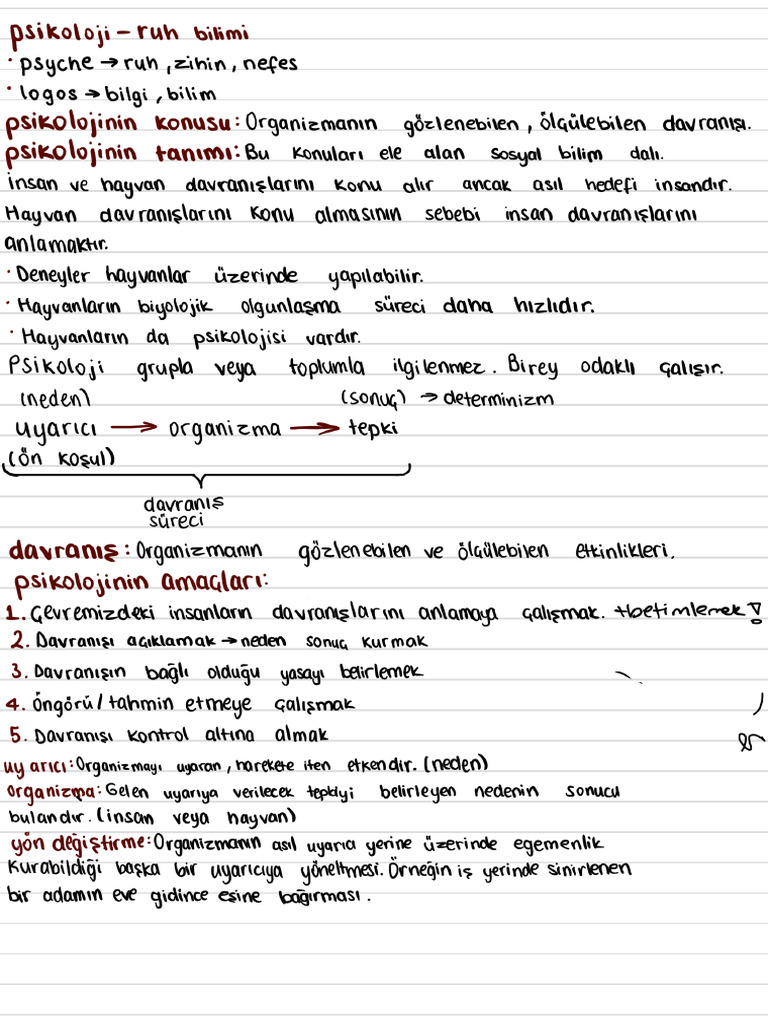 psikoloji - ruh bilimi
· psyche → ruh, zihin, nefes
· logos → bilgi, bilim
psikolojinin konusu: Organizmanın gözlenebilen, ölçülebilen davranışı.
psikolojinin tanımı: Bu konuları ele alan sosyal bilim dalı.
İnsan ve hayvan davranışlarını konu alır ancak asıl hedefi insandır.
Hayvan davranışlarını konu almasının sebebi insan davranışlarını
anlamaktır.
· Deneyler hayvanlar üzerinde yapılabilir.
· Hayvanların biyolojik olgunlaşma süreci daha hızlıdır.
· Hayvanların da psikolojisi vardır.
Psikoloji grupla veya toplumla ilgilenmez. Birey odaklı çalışır.
(neden) (sonuç) → determinizm
uyarıcı → organizma → tepki
(ön koşul)
davranış
süreci
davranış: Organizmanın gözlenebilen ve ölçülebilen etkinlikleri.
psikolojinin amaçları:
1. Çevremizdeki insanların davranışlarını anlamaya çalışmak. → betimlemek!
2. Davranışı açıklamak → neden sonuç kurmak
3. Davranışın bağlı olduğu yasayı belirlemek
4. Öngörü/tahmin etmeye çalışmak
5. Davranışı kontrol altına almak
uyarıcı: Organizmayı uyaran, harekete iten etkendir. (neden)
organizma: Gelen uyarıya verilecek tepkiyi belirleyen nedenin sonucu
bulandır. (insan veya hayvan)
yön değiştirme: Organizmanın asıl uyarıcı yerine üzerinde egemenlik
kurabildiği başka bir uyarıcıya yöneltmesi. Örneğin iş yerinde sinirlenen
bir adamın eve gidince eşine bağırması.